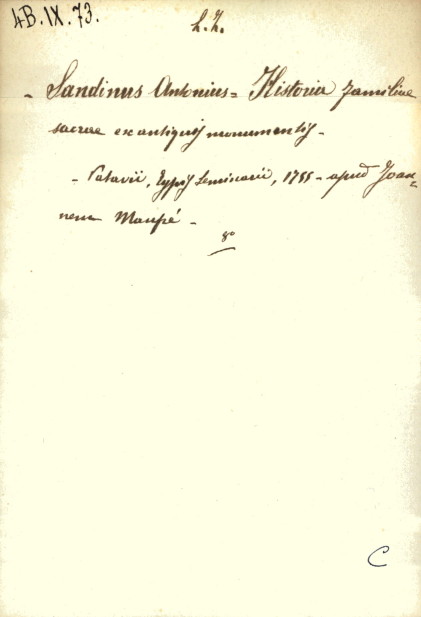 4B.IX.73.
h.h.
- Sandinus Antonius = Historia familiae
sacrae ex antiquis monumentis -
- Patavii, Typis Seminarii, 1755 - apud Joan=
nem Manfré -
8°
C